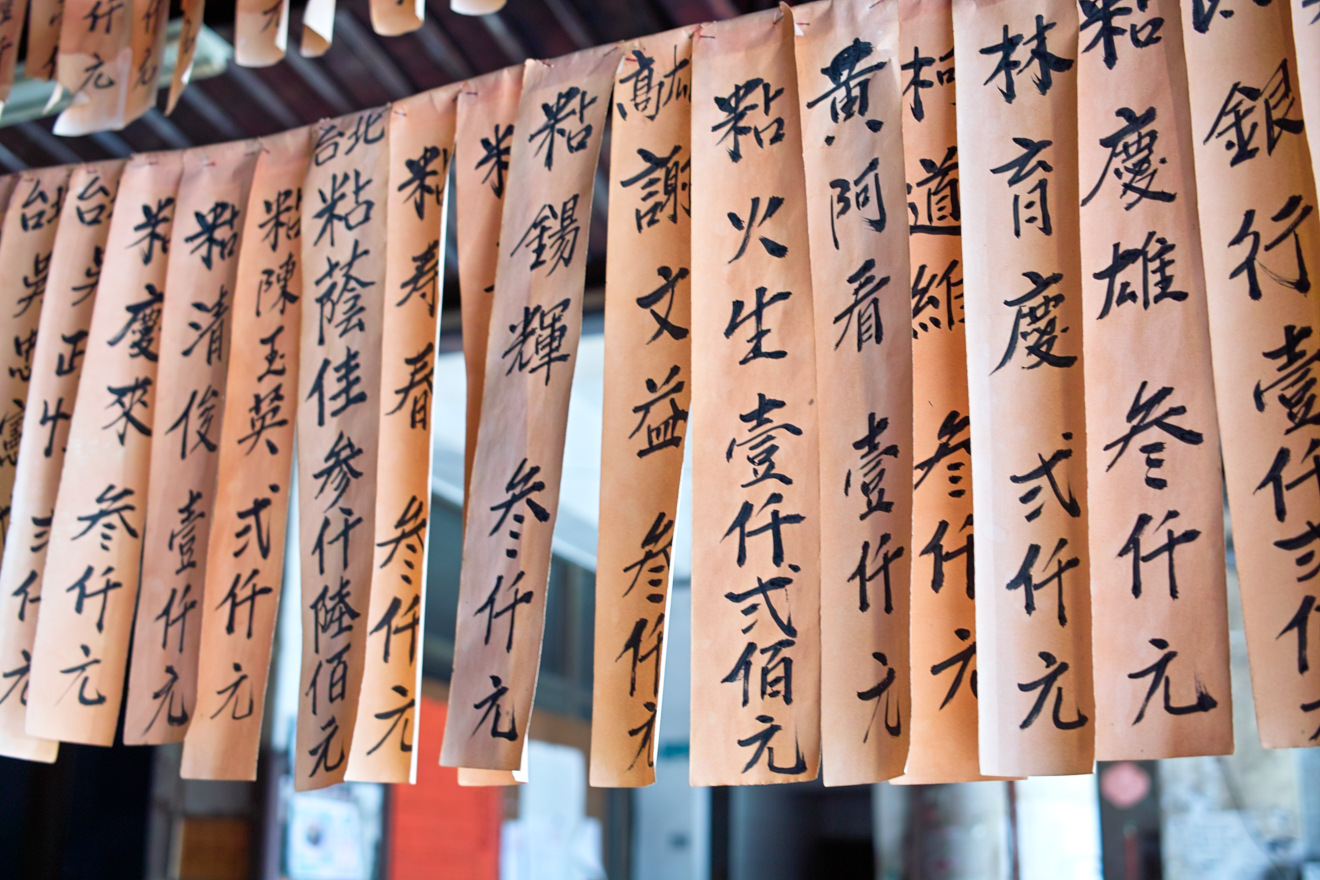 銀行壹仟
粘慶雄叁仟元
林育慶弍仟元
柯道維叁仟元
黃阿看壹仟元
粘火生壹仟弍佰元
高雄謝文益叁仟元
粘錫輝叁仟元
粘寿春叁仟元
台北粘蔭佳参仟陸佰元
粘陳玉英弍仟元
粘清俊壹仟元
粘慶來叁仟元
台吳正仟元
台吳忠憲
仟元